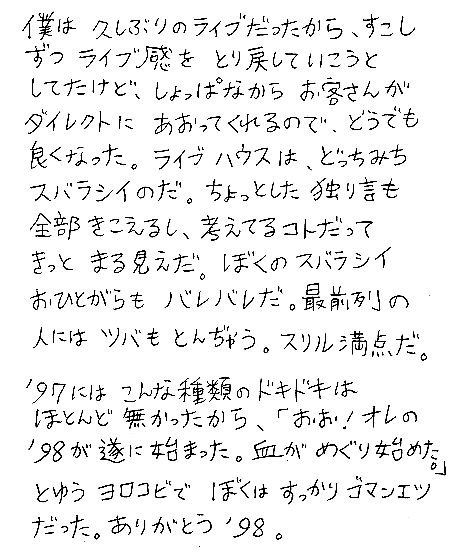 僕は 久しぶりのライブだったから、すこし
ずつ ライブ感を とり戻していこうと
してたけど、しょっぱなから お客さんが
ダイレクトに あおってくれるので、どうでも
良くなった。ライブハウスは、どっちみち
スバラシイのだ。ちょっとした 独り言も
全部きこえるし、考えてるコトだって
きっと まる見えだ。ぼくのスバラシイ
おひとがらも バレバレだ。最前列の
人には ツバも とんぢゃう。スリル満点だ。
'97には こんな種類のドキドキは
ほとんど 無かったから、「おお！オレの
'98が遂に始まった。血が めぐり始めた。」
とゆう ヨロコビで ぼくは すっかり ゴマンエツ
だった。ありがとう '98。